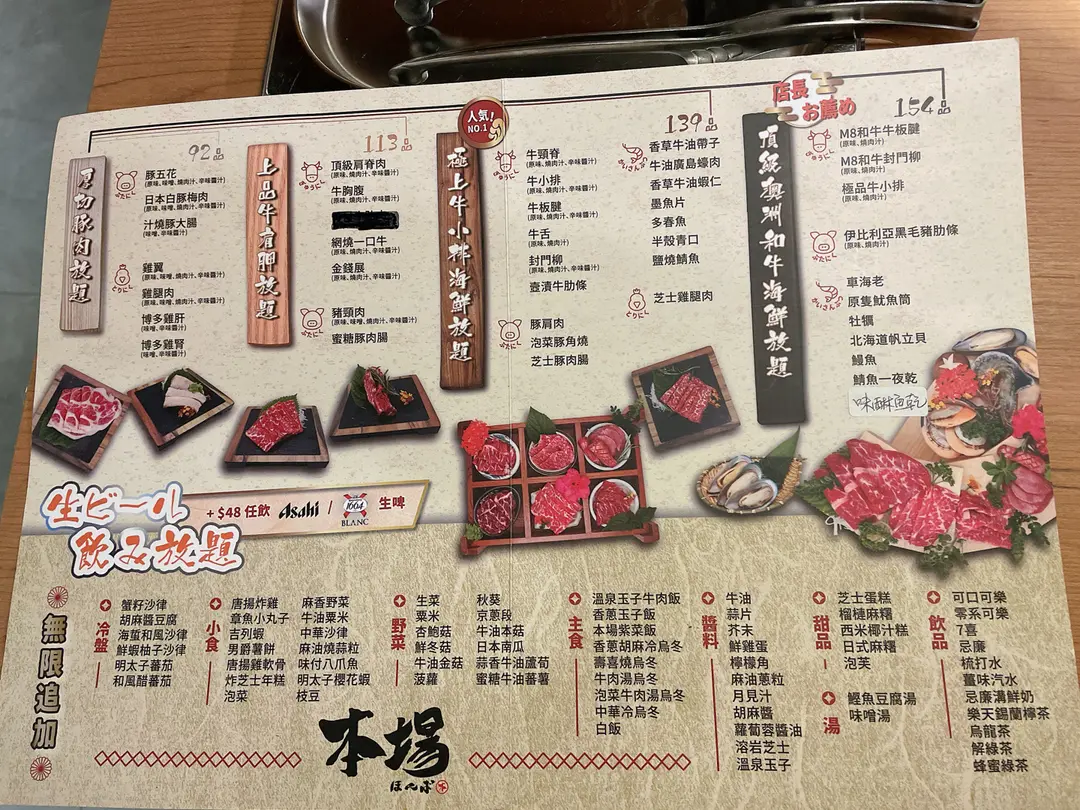 92品
厚切豚肉放題
豚五花
(原味、味噌、燒肉汁、辛味醬汁)
日本白豚梅肉
(原味、味噌、燒肉汁、辛味醬汁)
汁燒豚大腸
(味噌、辛味醬汁)
雞翼
(原味、味噌、燒肉汁、辛味醬汁)
雞腿肉
(原味、味噌、燒肉汁、辛味醬汁)
博多雞肝
(味噌、辛味醬汁)
博多雞腎
(味噌、辛味醬汁)
113品
上品牛肩胛放題
頂級肩脊肉
(原味、燒肉汁、辛味醬汁)
牛胸腹
(原味、燒肉汁、辛味醬汁)
網燒一口牛
(原味、燒肉汁、辛味醬汁)
金錢展
(原味、燒肉汁、辛味醬汁)
豬頸肉
(原味、味噌、燒肉汁、辛味醬汁)
蜜糖豚肉腸
人気!
NO.1
139品
極上牛小排海鮮放題
牛頸脊
(原味、燒肉汁、辛味醬汁)
牛小排
(原味、燒肉汁、辛味醬汁)
牛板腱
(原味、燒肉汁、辛味醬汁)
牛舌
(原味、燒肉汁)
封門柳
(原味、燒肉汁、辛味醬汁)
壺漬牛肋條
豚肩肉
泡菜豚角燒
芝士豚肉腸
香草牛油帶子
牛油廣島蠔肉
香草牛油蝦仁
墨魚片
多春魚
半殼青口
鹽燒鯖魚
芝士雞腿肉
店長
お薦め
154品
頂級澳洲和牛海鮮放題
M8和牛牛板腱
(原味、燒肉汁)
M8和牛封門柳
(原味、燒肉汁)
極品牛小排
(原味、燒肉汁)
伊比利亞黑毛豬肋條
(原味、燒肉汁)
車海老
原隻魷魚筒
牡犡
北海道帆立貝
鰻魚
鯖魚一夜乾
味醂魚乾
生ビール
飲み放題
+$48 任飲 Asahi / 1664 BLANC 生啤
無限追加
冷盤
蟹籽沙律
胡麻醬豆腐
海蜇和風沙律
鮮蝦柚子沙律
明太子蕃茄
和風醋蕃茄
小食
唐揚炸雞
章魚小丸子
吉列蝦
男爵薯餅
唐揚雞軟骨
炸芝士年糕
泡菜
麻香野菜
牛油粟米
中華沙律
麻油燒蒜粒
味付八爪魚
明太子櫻花蝦
枝豆
野菜
生菜
粟米
杏鮑菇
鮮冬菇
牛油金菇
菠蘿
秋葵
京蔥段
牛油本菇
日本南瓜
蒜香牛油蘆荀
蜜糖牛油蕃薯
主食
溫泉玉子牛肉飯
香蔥玉子飯
本場紫菜飯
香蔥胡麻冷烏冬
壽喜燒烏冬
牛肉湯烏冬
泡菜牛肉湯烏冬
中華冷烏冬
白飯
醬料
牛油
蒜片
芥末
鮮雞蛋
檸檬角
麻油蔥粒
月見汁
胡麻醬
蘿蔔蓉醬油
溶岩芝士
溫泉玉子
甜品
芝士蛋糕
榴槤麻糬
西米椰汁糕
日式麻糬
泡芙
湯
鰹魚豆腐湯
味噌湯
飲品
可口可樂
零系可樂
7喜
忌廉
梳打水
薑味汽水
忌廉溝鮮奶
樂天錫蘭檸茶
烏龍茶
解綠茶
蜂蜜綠茶
本場
ほんば